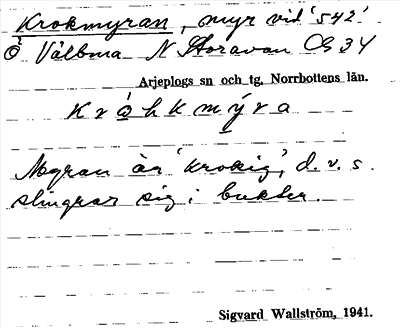 Krokmyran, myr vid '542'
Ö Vålbma N Storavan Cg 34
Arjeplogs sn och tg, Norrbottens län.
Kråhkmýra
Myran är 'krokig', d.v.s.
slingrar sig i bukter.
Sigvard Wallström, 1941.